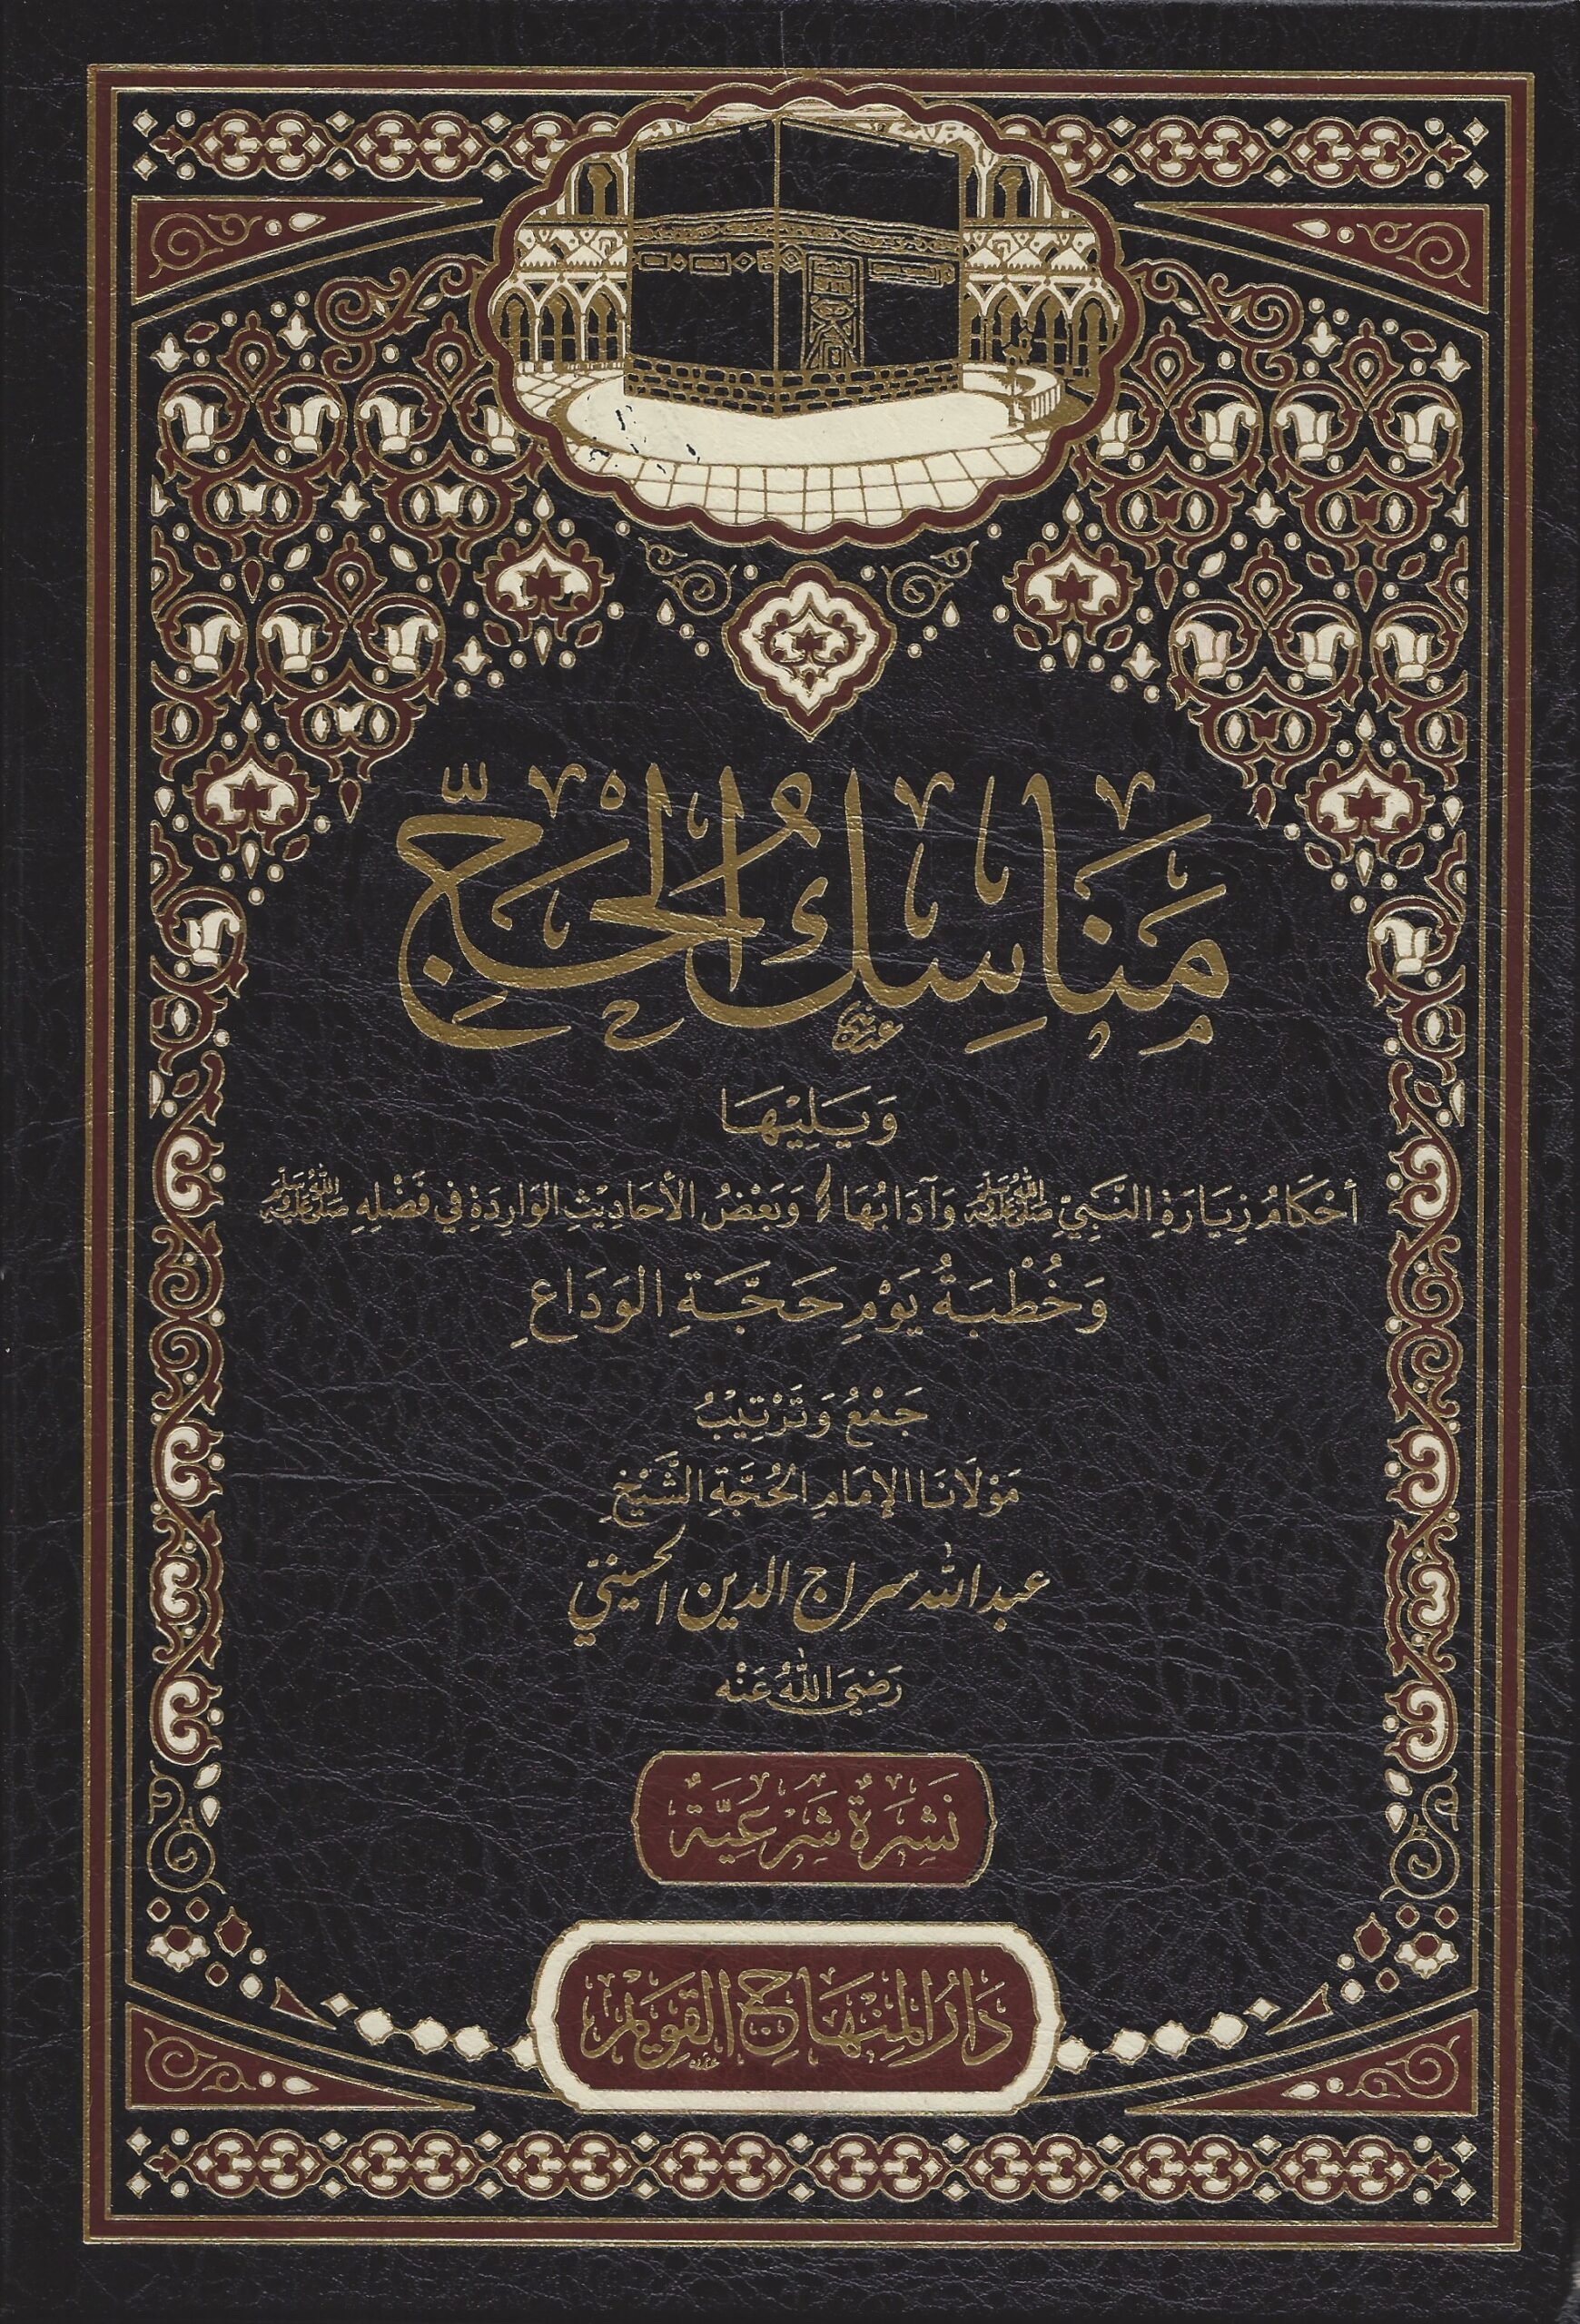 مَنَاسِكُ الحَجِّ
وَيَلِيْهَا
أحْكَامُ زِيَارَةِ النَّبِيِّ ﷺ وَآدَابُهَا / وَبَعْضُ الأَحَادِيْثِ الوَارِدَةِ فِي فَضْلِهِ ﷺ
وَخُطْبَةُ يَوْمِ حَجَّةِ الوَدَاعِ
جَمْعُ وَتَرْتِيْبُ
مَوْلَانَا الإِمَامِ الحُجَّةِ الشَّيْخِ
عبد الله سراج الدين الحسيني
رَضِيَ اللهُ عَنْه
نَشْرَةٌ شَرْعِيَّةٌ
دَارُ المِنْهَاجِ القَوِيْمِ